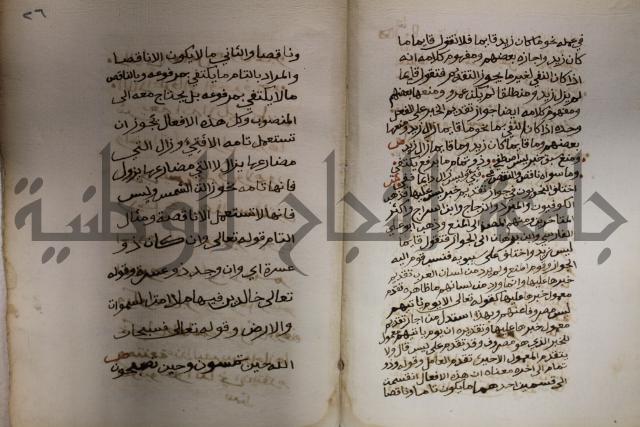 في عمله نحو ما كان زيد قايما فلا تقول قايما ما
كان زيد واجازه بعضهم ومفهوم كلامه انه
اذا كان النفي لغير ما يجوز التقديم فتقول قايما
لم يزل زيد ومنطلقا لم يكن عمرو ومنعهما بعضهم
ومفهوم كلامه ايضا جواز تقديم الخبر على الفعل
وحده اذا كان النفي بما نحو ما قايما زال زيد ومنعها
بعضهم وما قايما كان زيد وما قايما زال زيد ص
ومنع سبق خبر ليس اصطفي وذو تمام ما برفع يكتفي
وما سواه ناقص والنقص في
اختلف النحويون في جواز تقديم خبر ليس عليها فذهب
الكوفيون والمبرد والزجاج وابن السراج واكثر
المتاخرين الى المنع وذهب ابو علي
الفارسي وابن برهان الى الجواز فتقول قايما
ليس زيد واختلف على سيبويه فنسب قوم اليه
الجواز وقوم المنع ولم يرد من لسان العرب تقديم
خبرها عليها وانما ورد من لسانهم ما ظاهره تقديم
معمول خبرها عليها كقوله تعالى الا يوم ياتيهم
ليس مصروفا عنهم وبهذا استدل من اجاز تقديم
خبرها عليها وتقديره ان يوم ياتيهم معمول
الخبر الذي هو مصروف وقد تقدم على ليس قال ولا
يتقدم المعمول الا حيث يتقدم العامل وقوله وذو
تمام الى اخره معناه ان هذه الافعال انقسمت
الى قسمين احدهما ما يكون تاما وناقصا
٢٦
وناقصا والثاني ما لا يكون الا ناقصا
والمراد بالتام ما يكتفي بمرفوعه وبالناقص
ما لا يكتفي بمرفوعه بل يحتاج معه الى
المنصوب وكل هذه الافعال يجوز ان
تستعمل تامه الا فتي وزال التي
مضارعها يزال لا التي مضارعها يزول
فانها تامه نحو زالت الشمس وليس
فانها لا تستعمل الا ناقصة ومثال
التام قوله تعالى وان كان ذو
عسرة اي وان وجد ذو عسرة وقوله
تعالى خالدين فيها ما دامت السموات
والارض وقوله تعالى فسبحان
الله حين تمسون وحين تصبحون ص
جامعة النجاح الوطنية